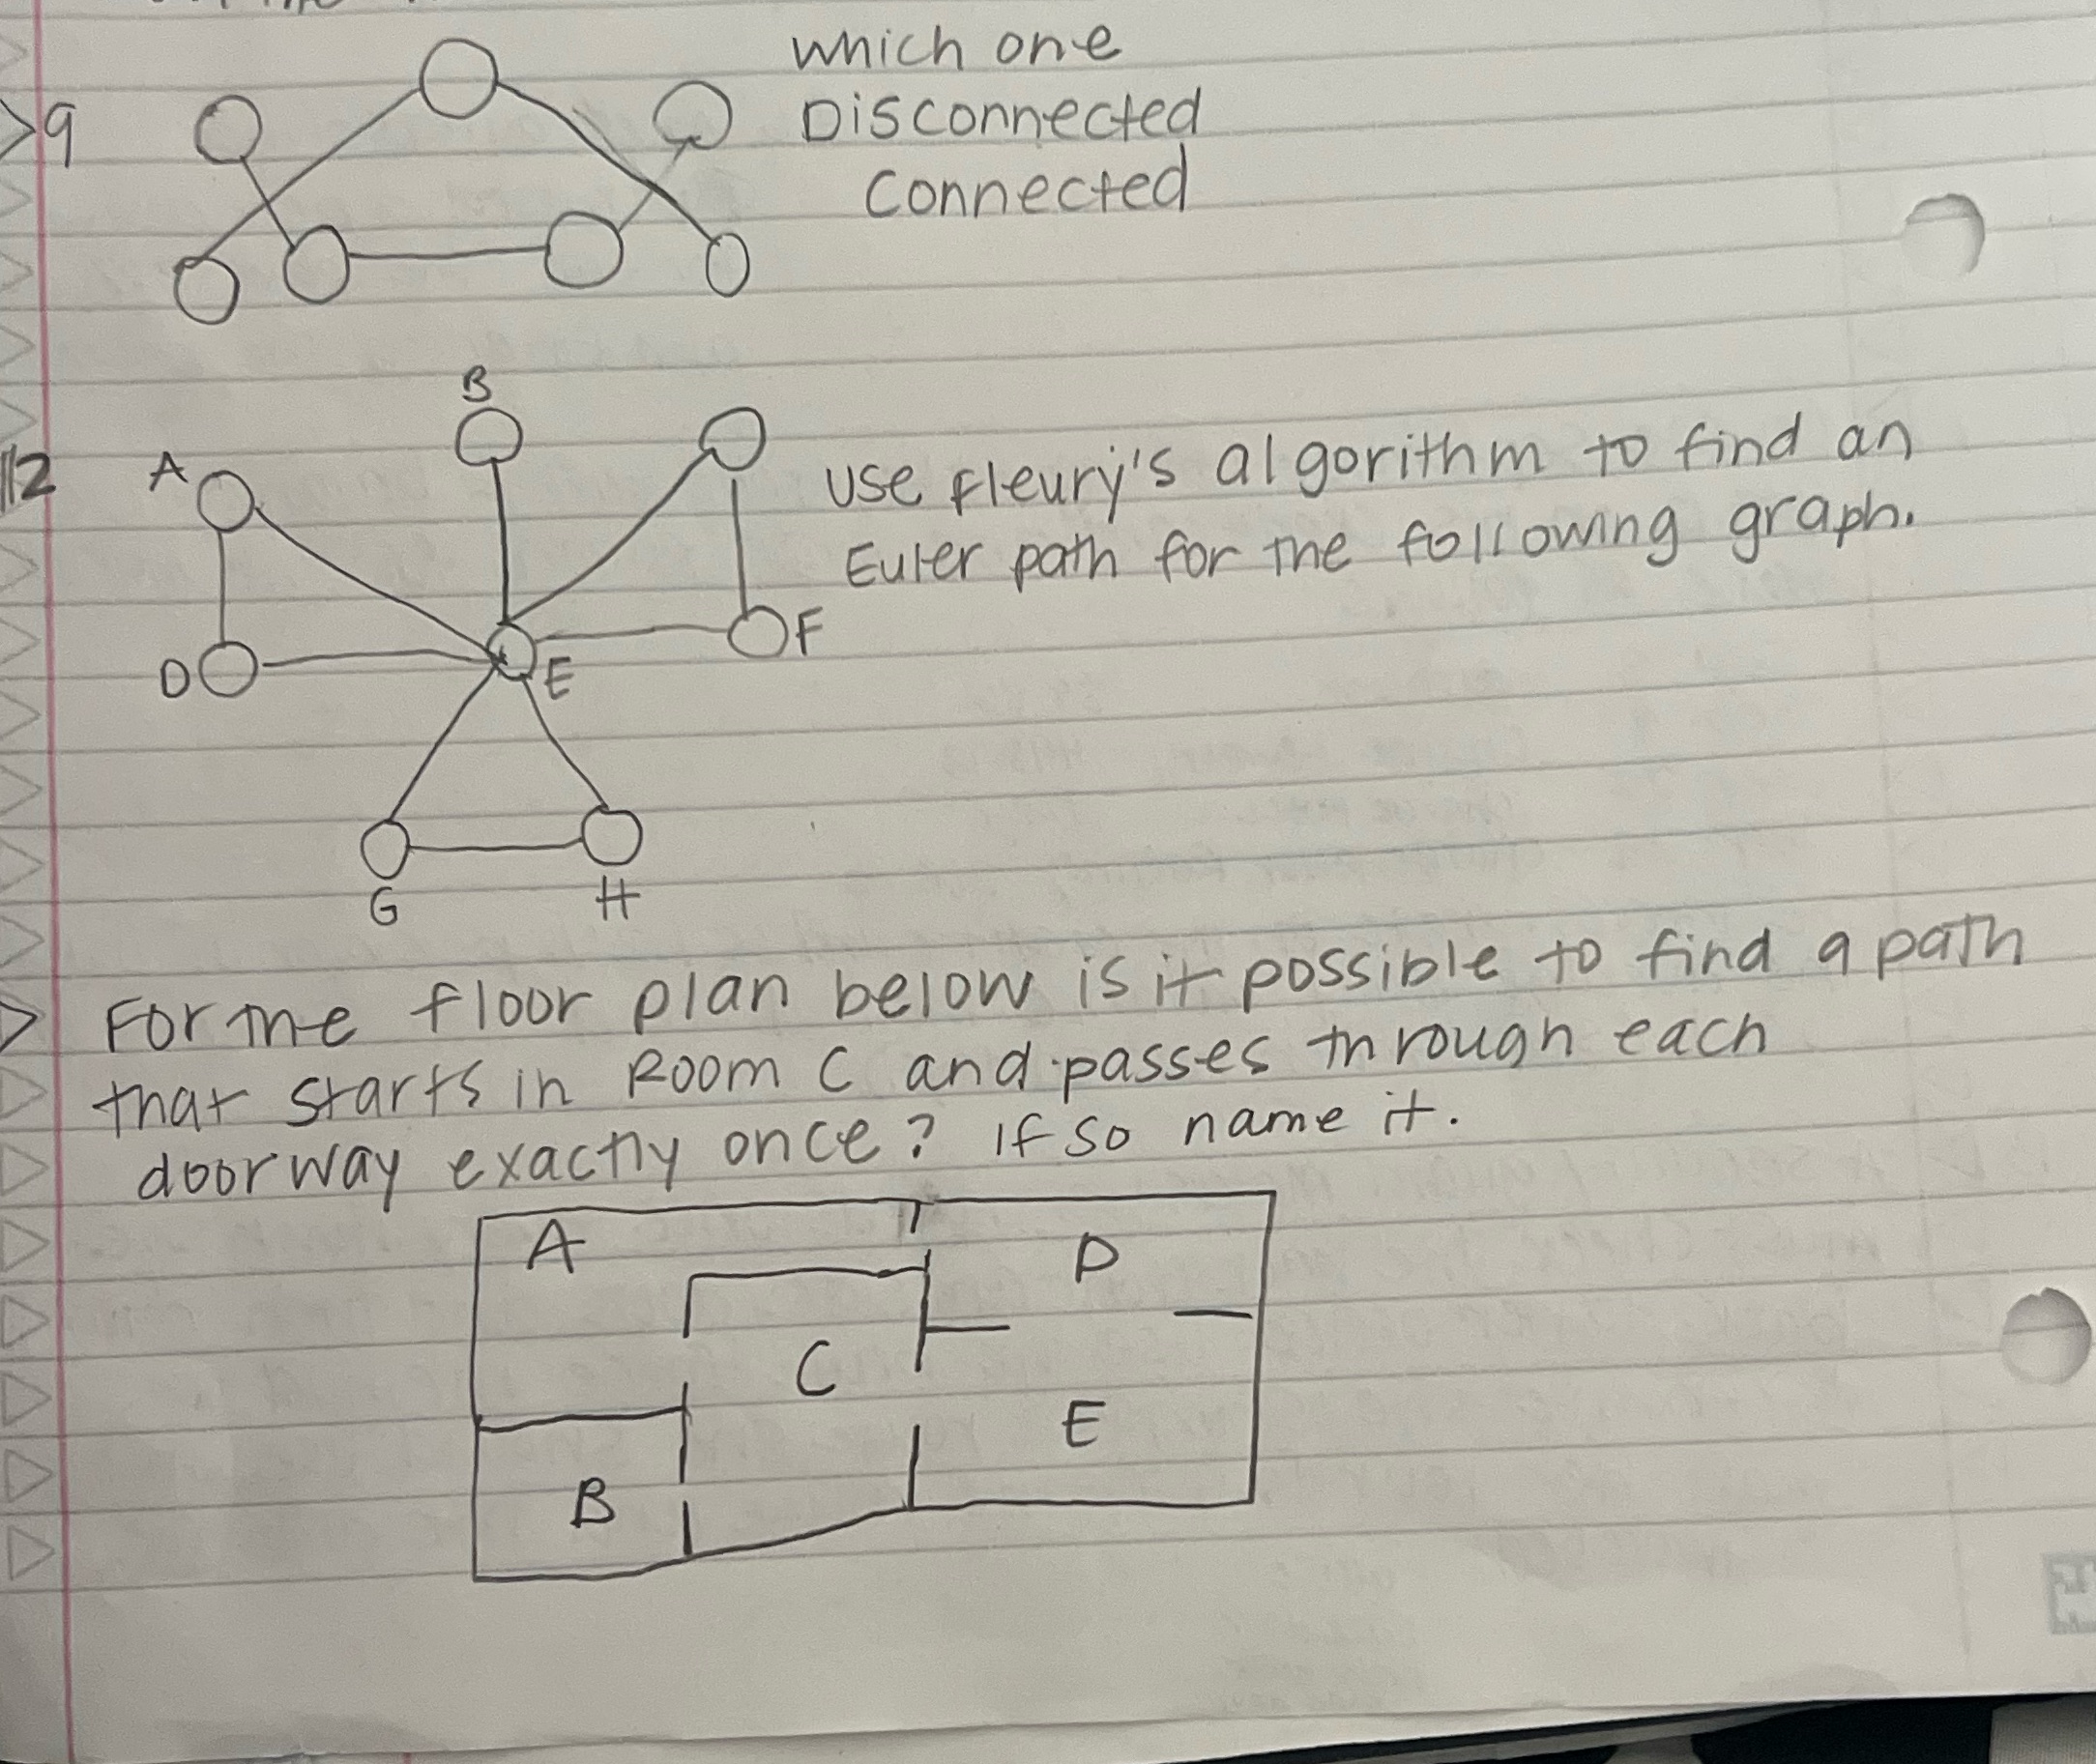 9
which one
Disconnected
Connected
12
B
A
use fleury's algorithm to find an
Euler path for the following graph.
D
E
F
G
H
For the floor plan below is it possible to find a path
that starts in Room C and passes through each
doorway exactly once? If so name it.
A
D
C
E
B